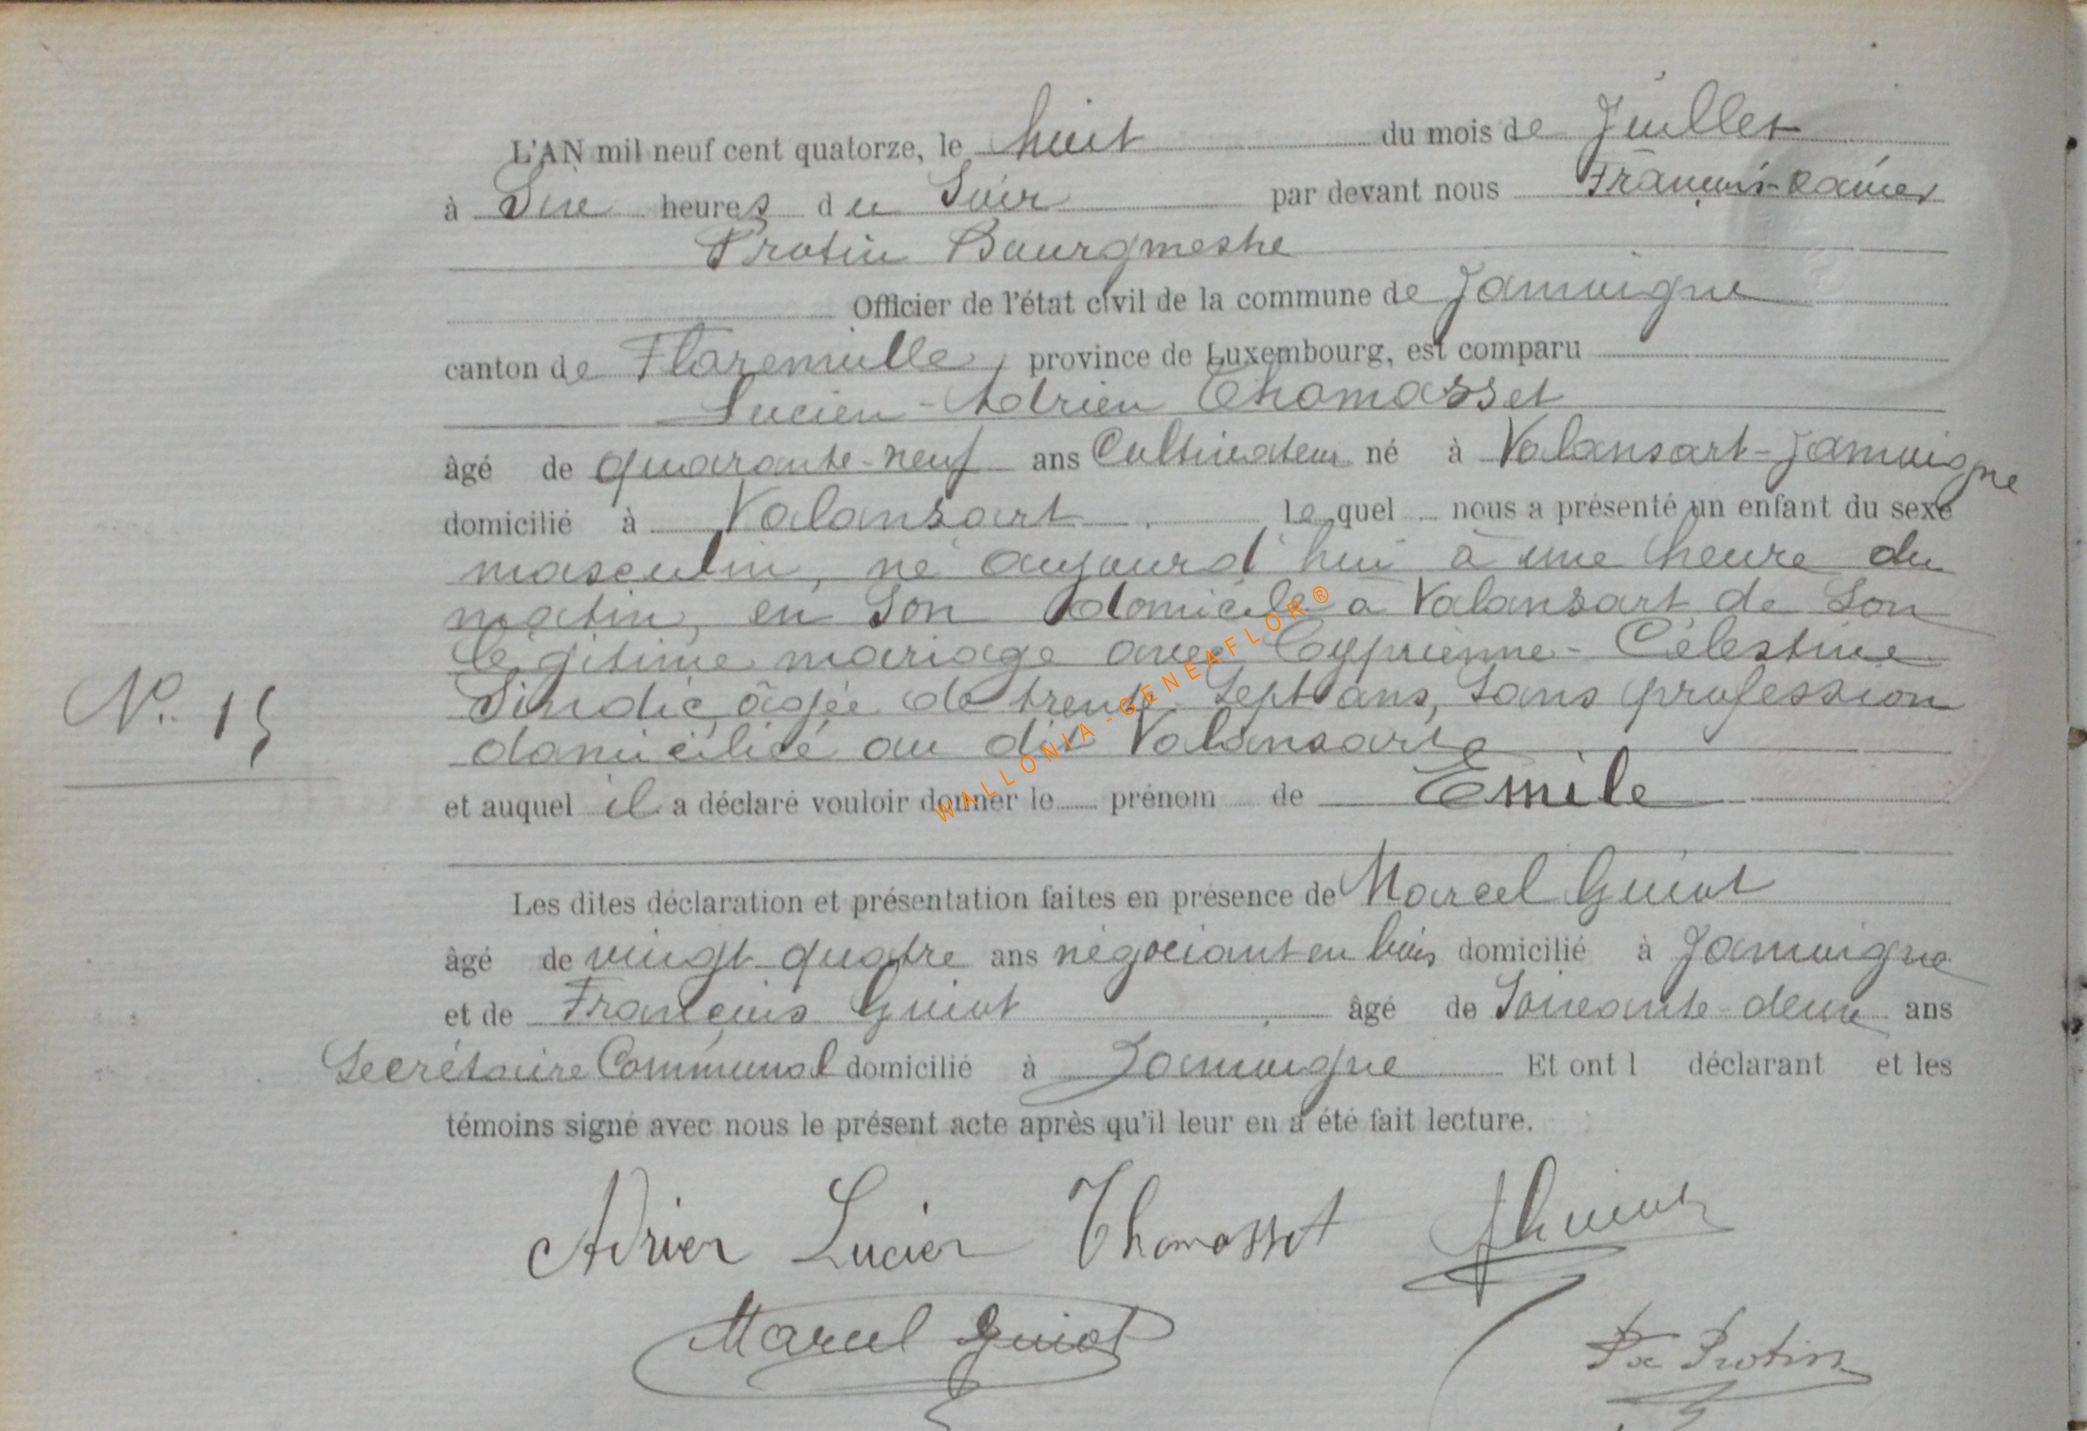 L'AN mil neuf cent quatorze, le huit du mois de Juillet
à Six heures du Soir par devant nous François-Xavier
Protin Bourgmestre
Officier de l'état civil de la commune de Jamoigne
canton de Florenville, province de Luxembourg, est comparu
Lucien-Adrien Thomasset
âgé de quarante-neuf ans Cultivateur né à Valansart-Jamoigne
domicilié à Valansart, lequel nous a présenté un enfant du sexe
masculin, né aujourd'hui à une heure du
matin, en Son domicile à Valansart de Son
légitime mariage avec Cyprienne-Célestine
Sindic, âgée de trente-Sept ans, Sans profession
domiciliée au dit Valansart
et auquel il a déclaré vouloir donner le prénom de Emile
N°. 15
WALLONIA-GENEAFLOR®
Les dites déclaration et présentation faites en présence de Marcel Guiot
âgé de vingt-quatre ans négociant en bois domicilié à Jamoigne
et de François Guiot, âgé de Soixante-deux ans
Secrétaire Communal domicilié à Jamoigne Et ont l déclarant et les
témoins signé avec nous le présent acte après qu'il leur en a été fait lecture.
Adrien Lucien Thomasset
Marcel Guiot
Protin